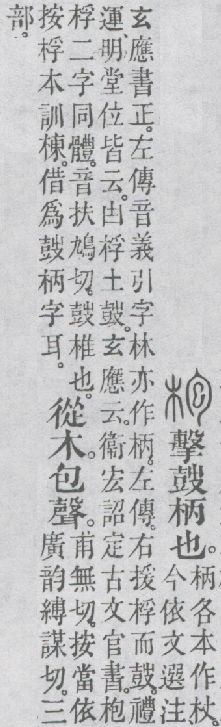 枹 擊鼓柄也。
柄各本作杖
今依文選注
玄應書正。左傳音義引字林亦作柄。左傳。右援桴而鼓。禮
運、明堂位皆云。凷桴土鼓。玄應云。衞宏詔定古文官書。枹
桴二字同體。音扶鳩切。鼓椎也。
按桴本訓棟。借爲鼓柄字耳。
從木。包聲。
甫無切。按當依
廣韵縛謀切。三
部。